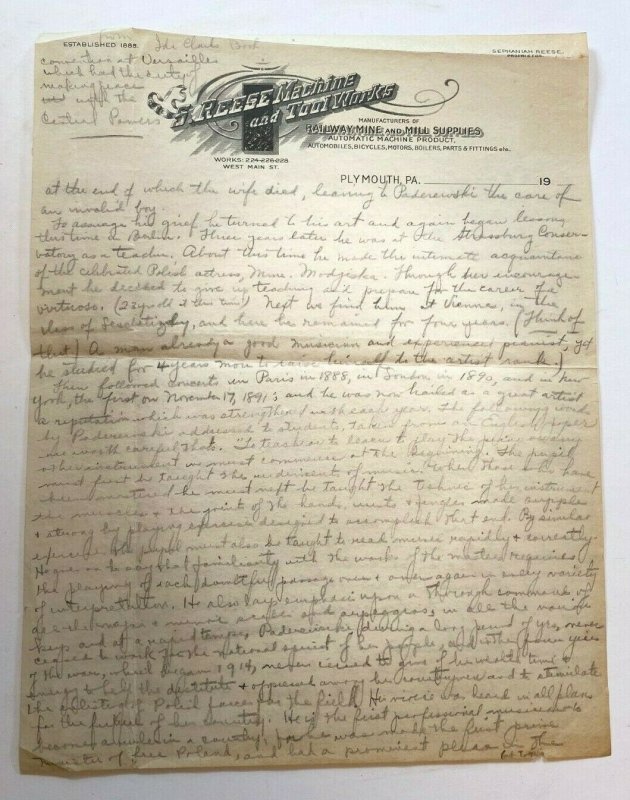 from Ida Clark Book
convention at Versailles
which had the duty of
making peace
with the
Central Powers
ESTABLISHED 1888.
SEPHANIAH REESE,
PROPRIETOR.
S. REESE MACHINE
AND TOOL WORKS
MANUFACTURERS OF
RAILWAY, MINE AND MILL SUPPLIES,
AUTOMATIC MACHINE PRODUCT,
AUTOMOBILES, BICYCLES, MOTORS, BOILERS, PARTS & FITTINGS etc.
WORKS: 224-226-228
WEST MAIN ST.
PLYMOUTH, PA. 19
at the end of which the wife died, leaving to Paderewski the care of
an invalid boy.
To assuage his grief he turned to his art and again began lessons
this time in Berlin. Three years later he was at the Strassburg Conser-
vatory as a teacher. About this time he made the intimate acquaintance
of the celebrated Polish actress, Mme. Modjeska. Through her encourage-
ment he decided to give up teaching and prepare for the career of a
virtuoso. (23 yrs old at this time) Next we find him at Vienna, in the
class of Leschetizky, and here he remained for four years. (Think of
that) A man already a good musician and experienced pianist, yet
he studied for 4 years more to raise himself to the artist rank.)
Then followed concerts in Paris in 1888, in London in 1890, and in New
York, the first on November 17, 1891; and he was now hailed as a great artist
a reputation which was strengthened with each year. The following words
by Paderewski addressed to students, taken from an English paper
are worth careful thot. "To teach or to learn to play the piano or any
other instrument we must commence at the beginning. The pupil
must first be taught the rudiments of music. When these have
been mastered he must next be taught the technic of his instrument
the muscles & the joints of the hands, wrists & fingers made supple
& strong by playing exercises designed to accomplish that end. By similar
the pupil must also be taught to read music rapidly & correctly.
He goes on to say that familiarity with the works of the masters requires
the playing of each doubtful passage over & over again in every variety
of interpretation. He also lays emphasis upon a thorough command of
all the major & minor scales and arpeggios, in all the various
keys and at a rapid tempo. Paderewski during a long period of yrs, never
ceased to work for the national spirit of his people and in the four years
of the war, which began 1914, never ceased to give of his wealth, time &
energy to help the destitute & oppressed among his countrymen and to stimulate
the of Polish forces in the field. His voice was heard in all plans
for the future of his country. He is the first professional musician to
become a ruler in a country, for he was made the first prime
minister of free Poland, and had a prominent place in the